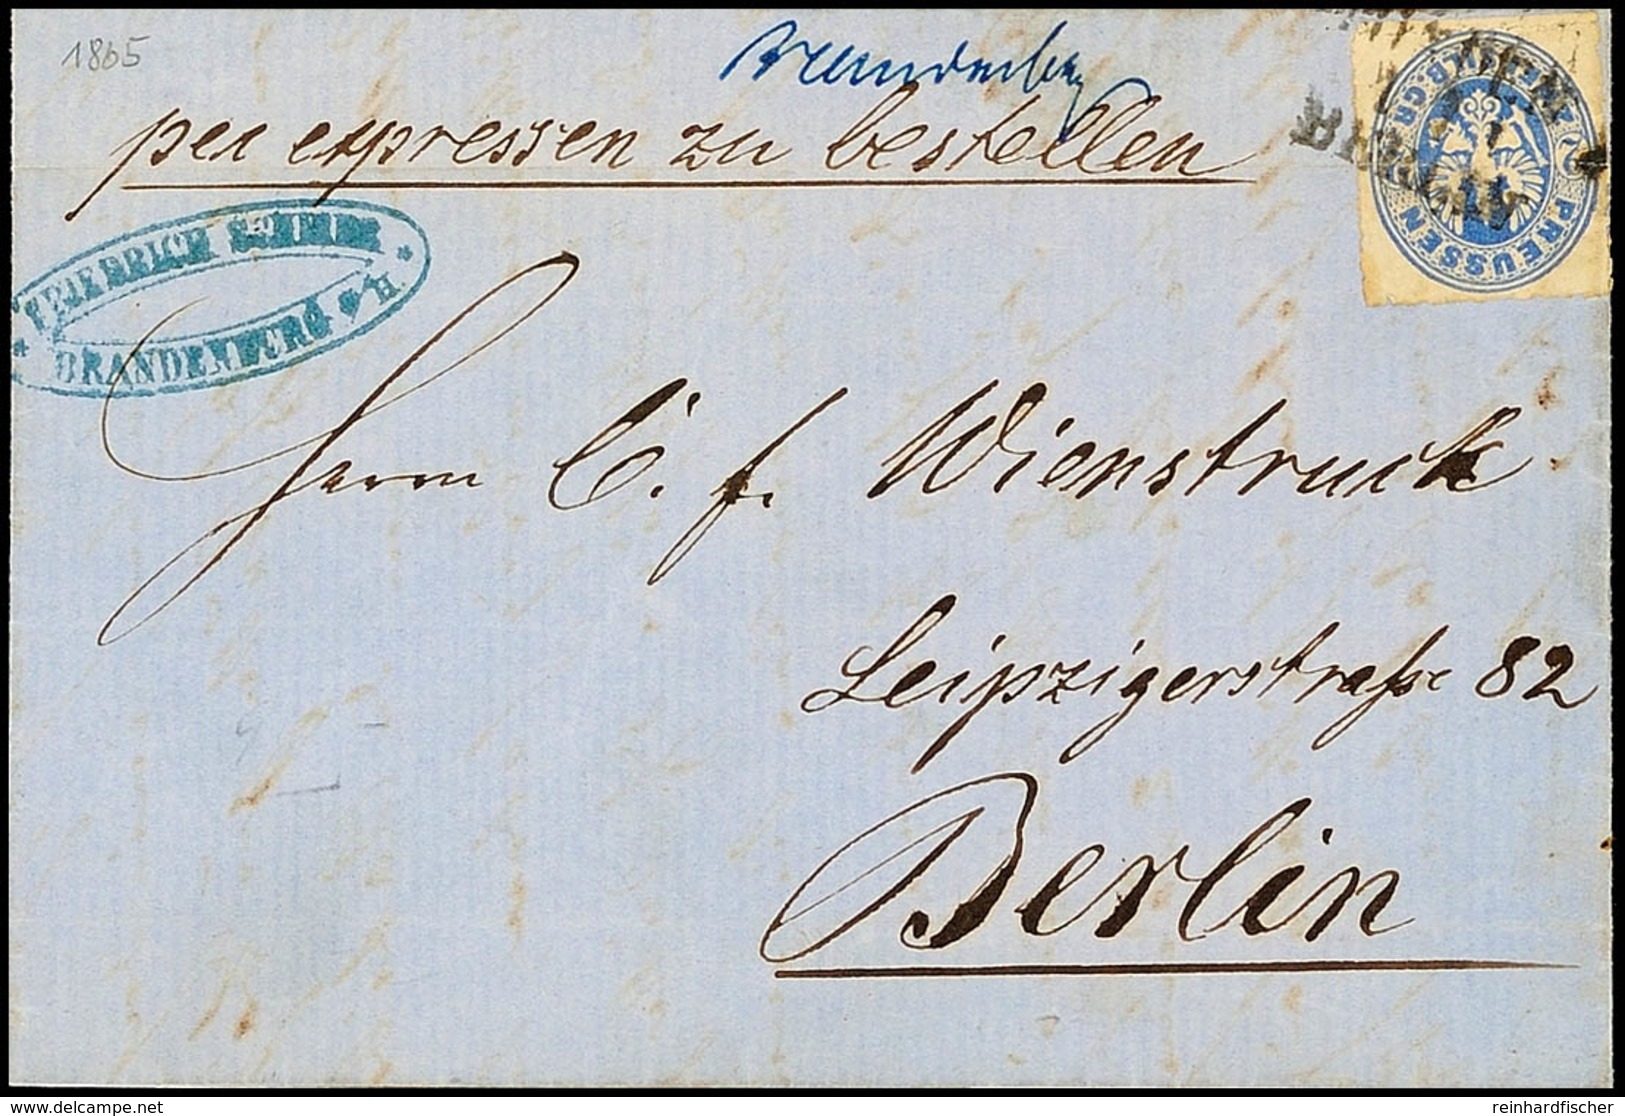 1865
Brandenburg
per expressen zu bestellen
BRANDENBURG a/H.
PREUSSEN
SILB. GR.
Herrn C. F. Wienstruck
Leipzigerstraße 82
Berlin
delcampe.net
reinhardfischer